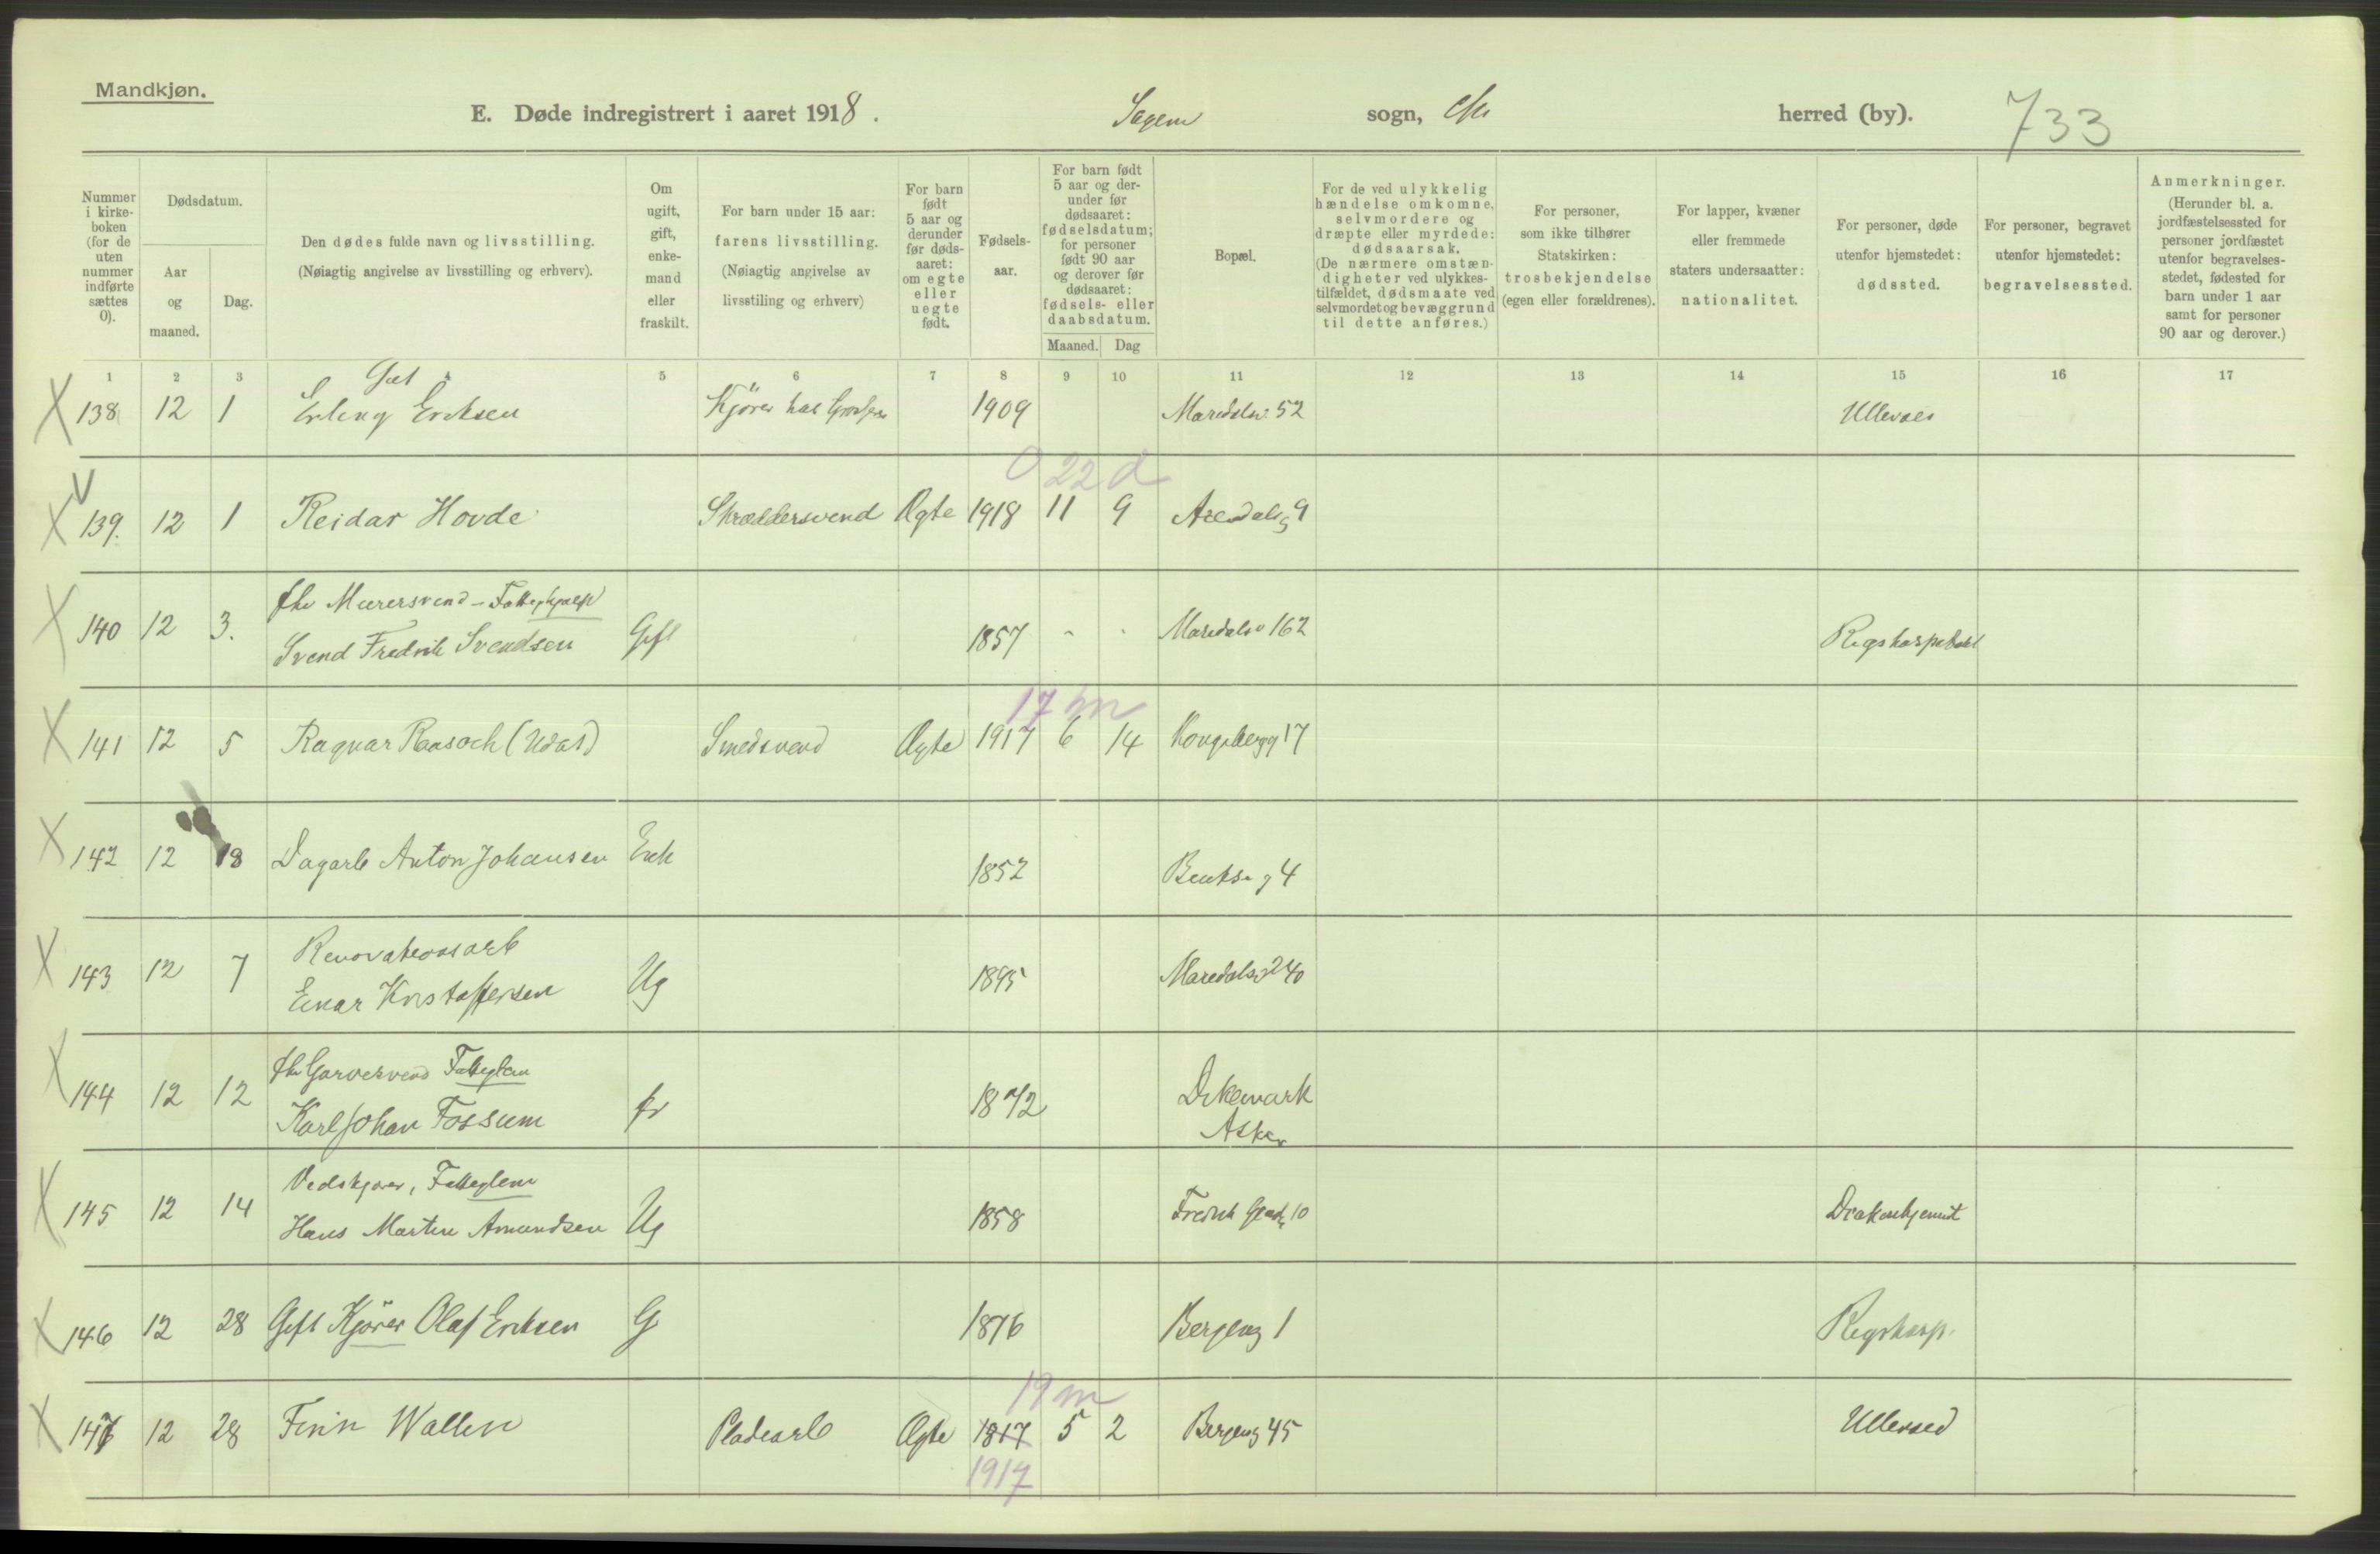 Mandkjøn.
E. Døde indregistrert i aaret 1918. Sagene sogn, herred (by). 733
Nummer i kirke-boken (for de uten nummer indførte sættes 0).
Dødsdatum.
Aar og maaned.
Dag.
Den dødes fulde navn og livsstilling.
(Nøiagtig angivelse av livsstilling og erhverv).
Om ugift, gift, enke-mand eller fraskilt.
For barn under 15 aar: farens livsstilling.
(Nøiagtig angivelse av livsstiling og erhverv)
For barn født 5 aar og derunder før døds-aaret: om egte eller uegte født.
Fødsels-aar.
For barn født 5 aar og der-under før dødsaaret: fødselsdatum; for personer født 90 aar og derover før dødsaaret: fødsels- eller daabsdatum.
Maaned. Dag
Bopæl.
For de ved ulykkelig hændelse omkomne, selvmordere og dræpte eller myrdede: dødsaarsak.
(De nærmere omstæn-digheter ved ulykkes-tilfældet, dødsmaate ved selvmordet og bevæggrund til dette anføres.)
For personer, som ikke tilhører Statskirken: trosbekjendelse (egen eller forældrenes).
For lapper, kvæner eller fremmede staters undersaatter: nationalitet.
For personer, døde utenfor hjemstedet: dødssted.
For personer, begravet utenfor hjemstedet: begravelsessted.
Anmerkninger.
(Herunder bl. a. jordfæstelsessted for personer jordfæstet utenfor begravelses-stedet, fødested for barn under 1 aar samt for personer 90 aar og derover.)
1 2 3 4 5 6 7 8 9 10 11 12 13 14 15 16 17
138 12 1 Erling Eriksen Kjører 1909 Maridalsv 52
0 22 d
139. 12 1 Reidar Hovde Skræddersvend Ægte 1918 11 9 Arendalsg 9
Murersvend -
140 12 3. Svend Fredrik Svendsen Gift 1857 - - Maridalsv 162 Rigshospitalet
17 m
141 12 5 Ragnar Smedsvend Ægte 1917 6 14 Kongsbergg 17
142 12 18 Dagarb Anton Johansen Enk 1852 4
Renovationsarb
143 12 7 Einar Kristoffersen Ug 1895 Maridalsv 240
Garversvend Fattiglem
144 12 12 Karl Johan Fossum fr 1872 Dikemark
Asker
Vedskjører, Fattiglem
145 12 14 Hans Martin Amundsen Ug 1858 Fredrik 10
146 12 28 Gift Kjører Olaf Eriksen G 1876 Bergensg 1 Rigshosp.
19 m
147 12 28 Finn Wallin Pladearb Ægte 1817 5 2 Bergensg 45
1917